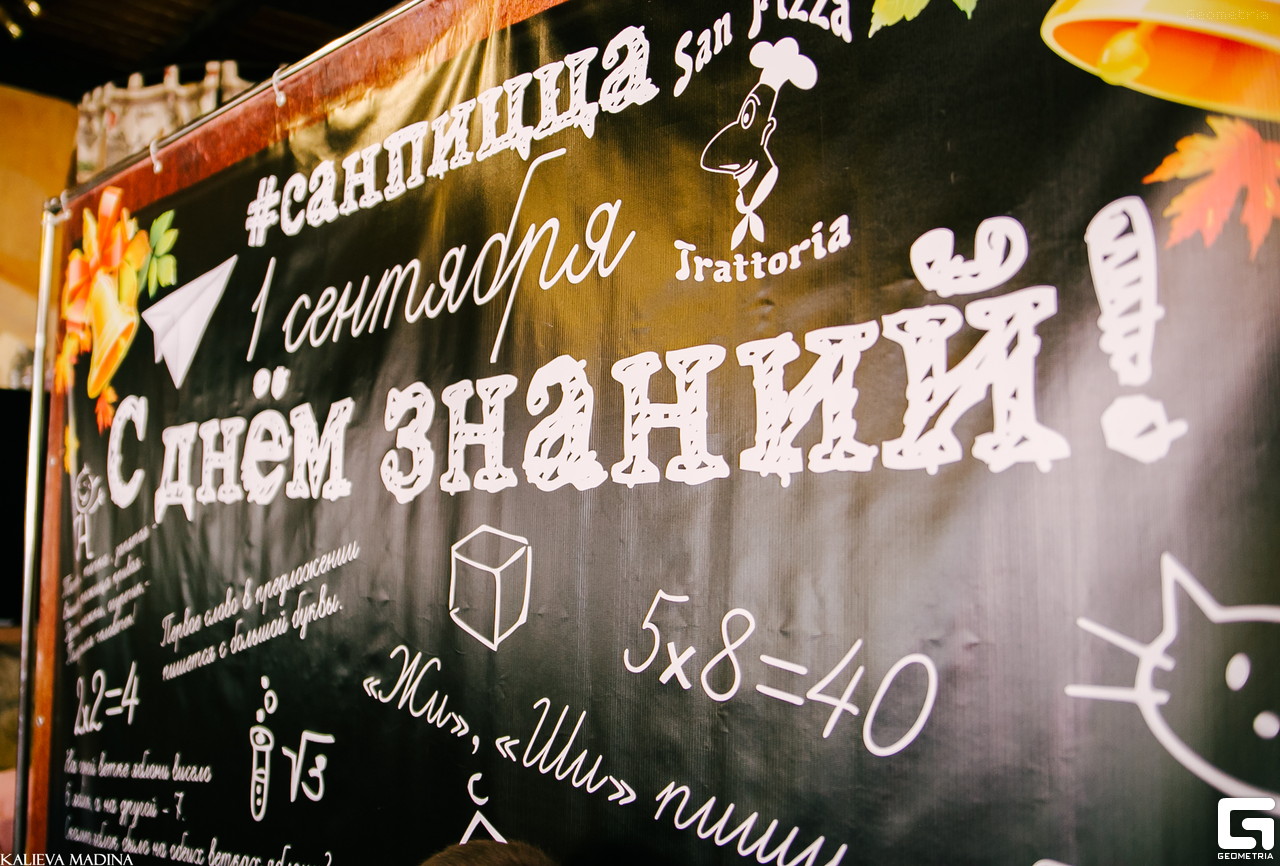 Geometria
San Pizza
#санпицца
Trattoria
1 сентября
С днём знаний!
Точка, точка,
Первое слово в предложении
пишется с большой буквы.
2x2=4
5x8=40
√3
«Жи», «Ши» пиши
На одной ветке яблони висело
6 яблок, а на другой - 7.
Сколько яблок было на обеих ветках яблони?
С
KALIEVA MADINA
GEOMETRIA